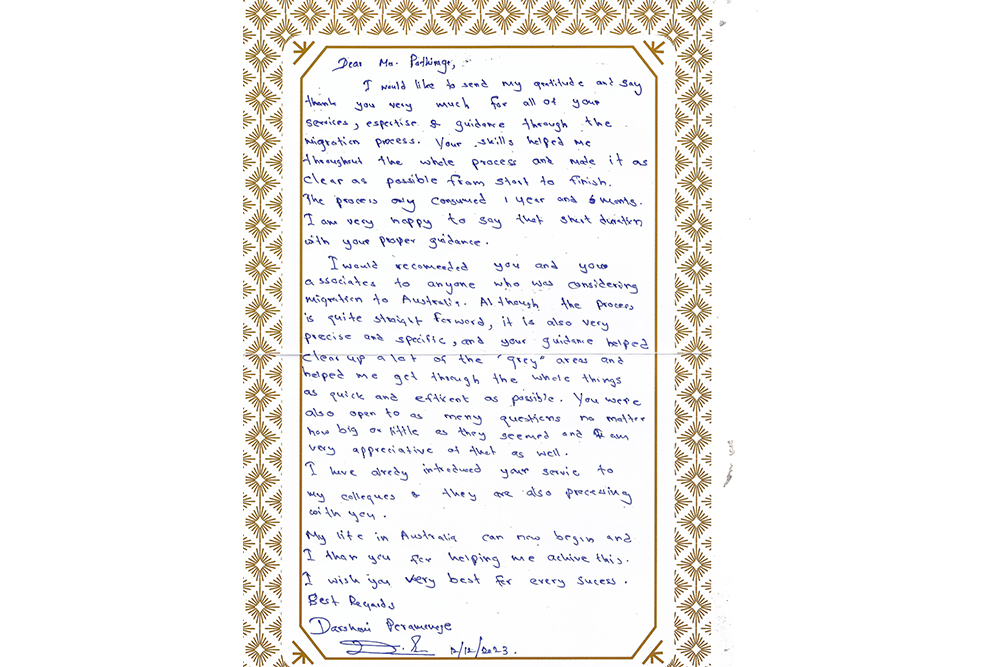 Dear Mr. Pathirage,
I would like to send my gratitude and say
thank you very much for all of your
services, espertise & guidance through the
migration process. Your skills helped me
throughout the whole process and made it as
clear as possible from start to finish.
The process only consumed 1 year and 6 monts.
I am very happy to say that short duration
with your proper guidance.
I would recomeeded you and your
associates to anyone who was considering
migration to Australia. Although the process
is quite straight forward, it is also very
precise and specific, and your guidance helped
clear up a lot of the "grey" areas and
helped me get through the whole things
as quick and effient as possible. You were
also open to as meny questions no matter
how big or little as they seemed and I am
very appreciative of that as well.
I have alredy introduced your servic to
my collegues & they are also processing
with you.
My life in Australia can now begin and
I than you for helping me achive this.
I wish you very best for every sucess.
Best Regards
Darshani
12/12/2023.